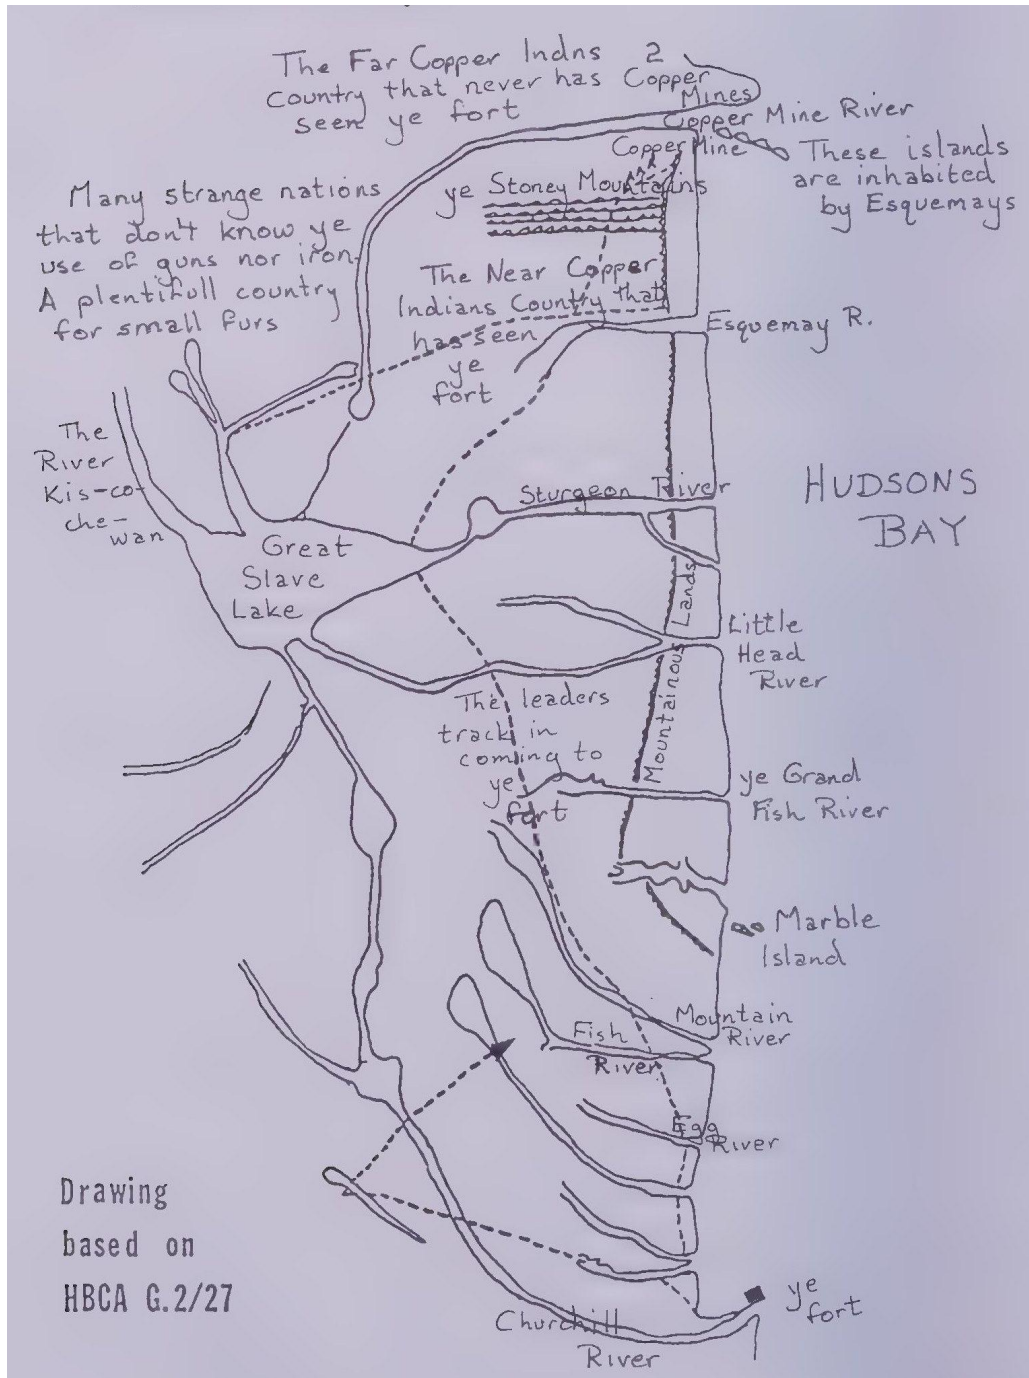 The Far Copper Indns
Country that never has
seen ye fort
2
Copper
Mines
Copper Mine River
Copper Mine
These islands
are inhabited
by Esquemays
ye Stoney Mountains
Many strange nations
that don't know ye
use of guns nor iron.
A plentifull country
for small furs
The Near Copper
Indians Country that
has seen
ye
fort
Esquemay R.
The
River
Kis-co-
che-
wan
Sturgeon River
HUDSONS
BAY
Great
Slave
Lake
Mountainous Lands
Little
Head
River
The leaders
track in
coming to
ye
fort
ye Grand
Fish River
Marble
Island
Mountain
River
Fish
River
Egg
River
Drawing
based on
HBCA G.2/27
ye
fort
Churchill
River